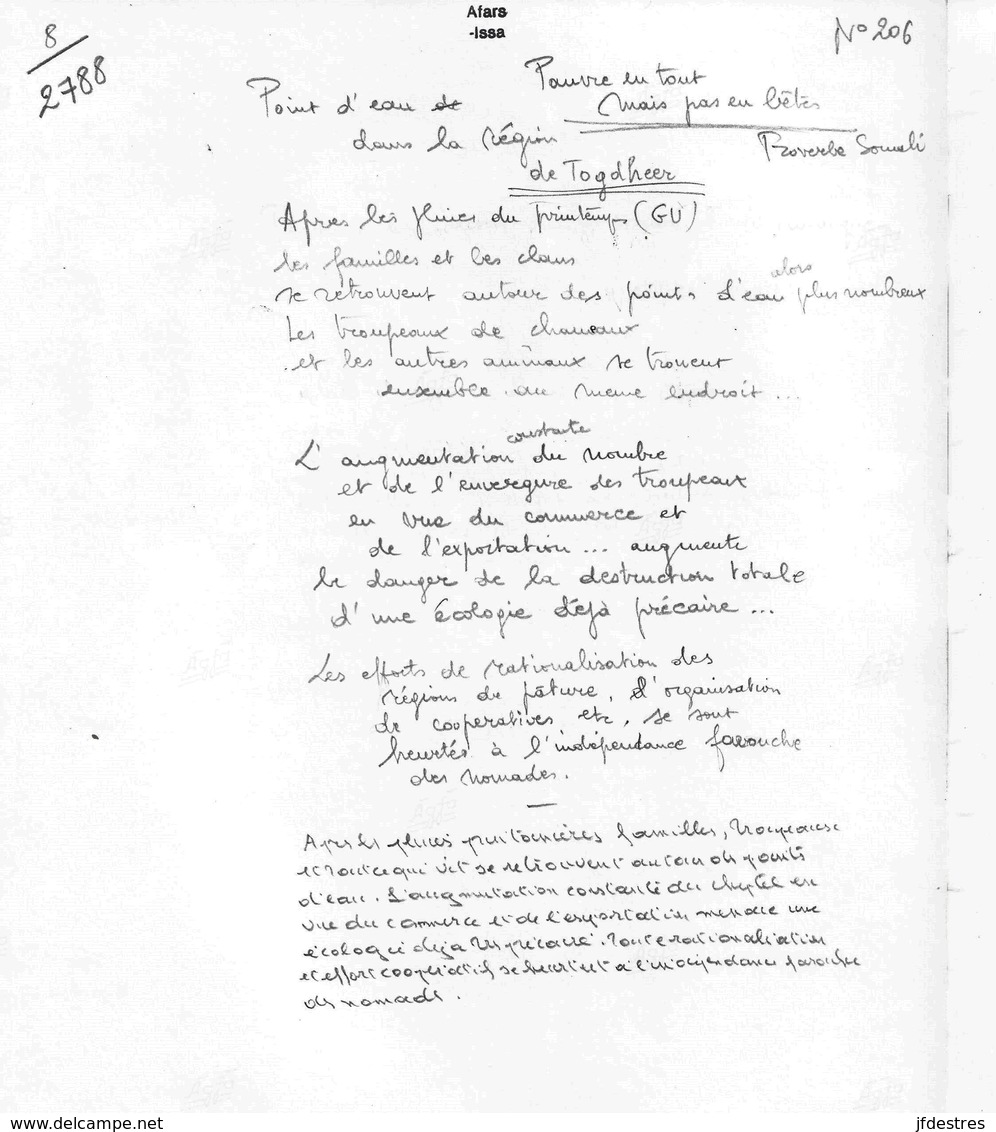 Afars
-Issa
8
2788
N° 206
Pauvre en tout
Mais pas en bêtes
Proverbe Somali
Point d'eau de
dans la région
de Togdheer
Après les pluies du printemps (GU)
les familles et les clans
se retrouvent autour des points d'eau alors plus nombreux
Les troupeaux de chameaux
et les autres animaux se trouvent
ensemble au même endroit ...
L'augmentation constante du nombre
et de l'envergure des troupeaux
en vue du commerce et
de l'exportation ... augmente
le danger de la destruction totale
d'une écologie déjà précaire ...
Les efforts de rationalisation des
régions de pâture, d'organisation
de cooperatives etc, se sont
heurtés à l'indépendance farouche
des nomades.
Après les pluies printanières familles, troupeaux
et tout ce qui vit se retrouvent autour des points
d'eau. L'augmentation constante du cheptel en
vue du commerce et de l'exportation menace une
écologie déjà très précaire. Toute rationalisation
et effort coopératif se heurtent à l'indépendance farouche
des nomades.
delcampe.net
jfdestres